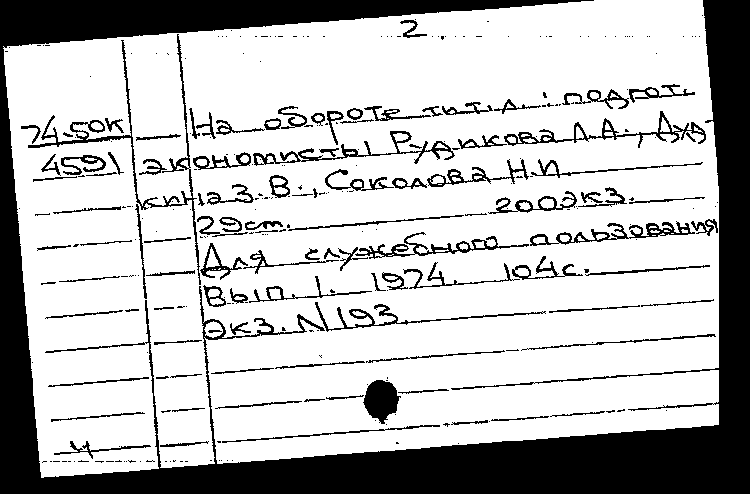 2
74-50к На обороте тит.л.: подгот.
4591 экономисты Рудикова Л.А., Дуд-
кина З.В., Соколова Н.И.
29см. 200экз.
Для служебного пользования
Вып. 1. 1974. 104с.
Экз. N193.
ч